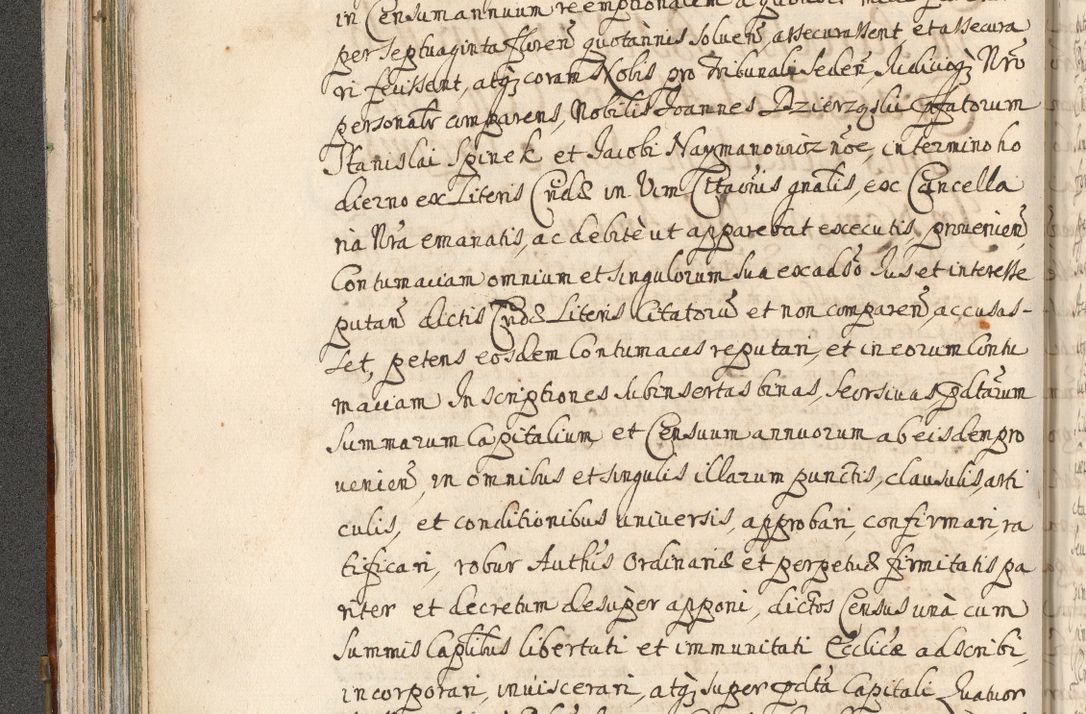 in Censum annuum reemptionalem a quibus
per septuaginta floren̄ quotannis solven̄, assecurassent et assecura
ri fecissent, atq̃ coram Nobis pro Tribunali seden̄, Judicioq̃ Nr̃o
personalr̃ comparens, Nobilis Joannes Dzierzgski p̃fatorum
Stanislai Spinek et Jacobi Naymanowicz nõe, in termino ho
dierno ex Literis Cridæ in Vim Citaõnis gñalis, ex Cancella
ria Nr̃a emanatis, ac debitè ut apparebat executis, provenien̄,
Contumaciam omnium et singulorum sua ex adũso Jus et interesse
putan̄ dictis Cridæ Literis Citatorũ et non comparen̄, accusas-
set, petens eosdem Contumaces reputari, et in eorum Contu
maciam Inscriptiones subinsertas binas, seorsivas p̃dtarum
summarum Capitalium et Censuum annuorum ab eisdem pro
venien̄, in omnibus et singulis illarum punctis, clausulis, arti
culis, et conditionibus universis, approbari, confirmari, ra
tificari, robur Authtis Ordinariæ et perpetuæ firmitatis pa
riter et decretum desuper apponi, dictos Census unà cum
summis Caplibus libertati et immunitati Ecclicæ adscribi,
incorporari, inviscerari, atq̃ super p̃dta Capitali Quatuor